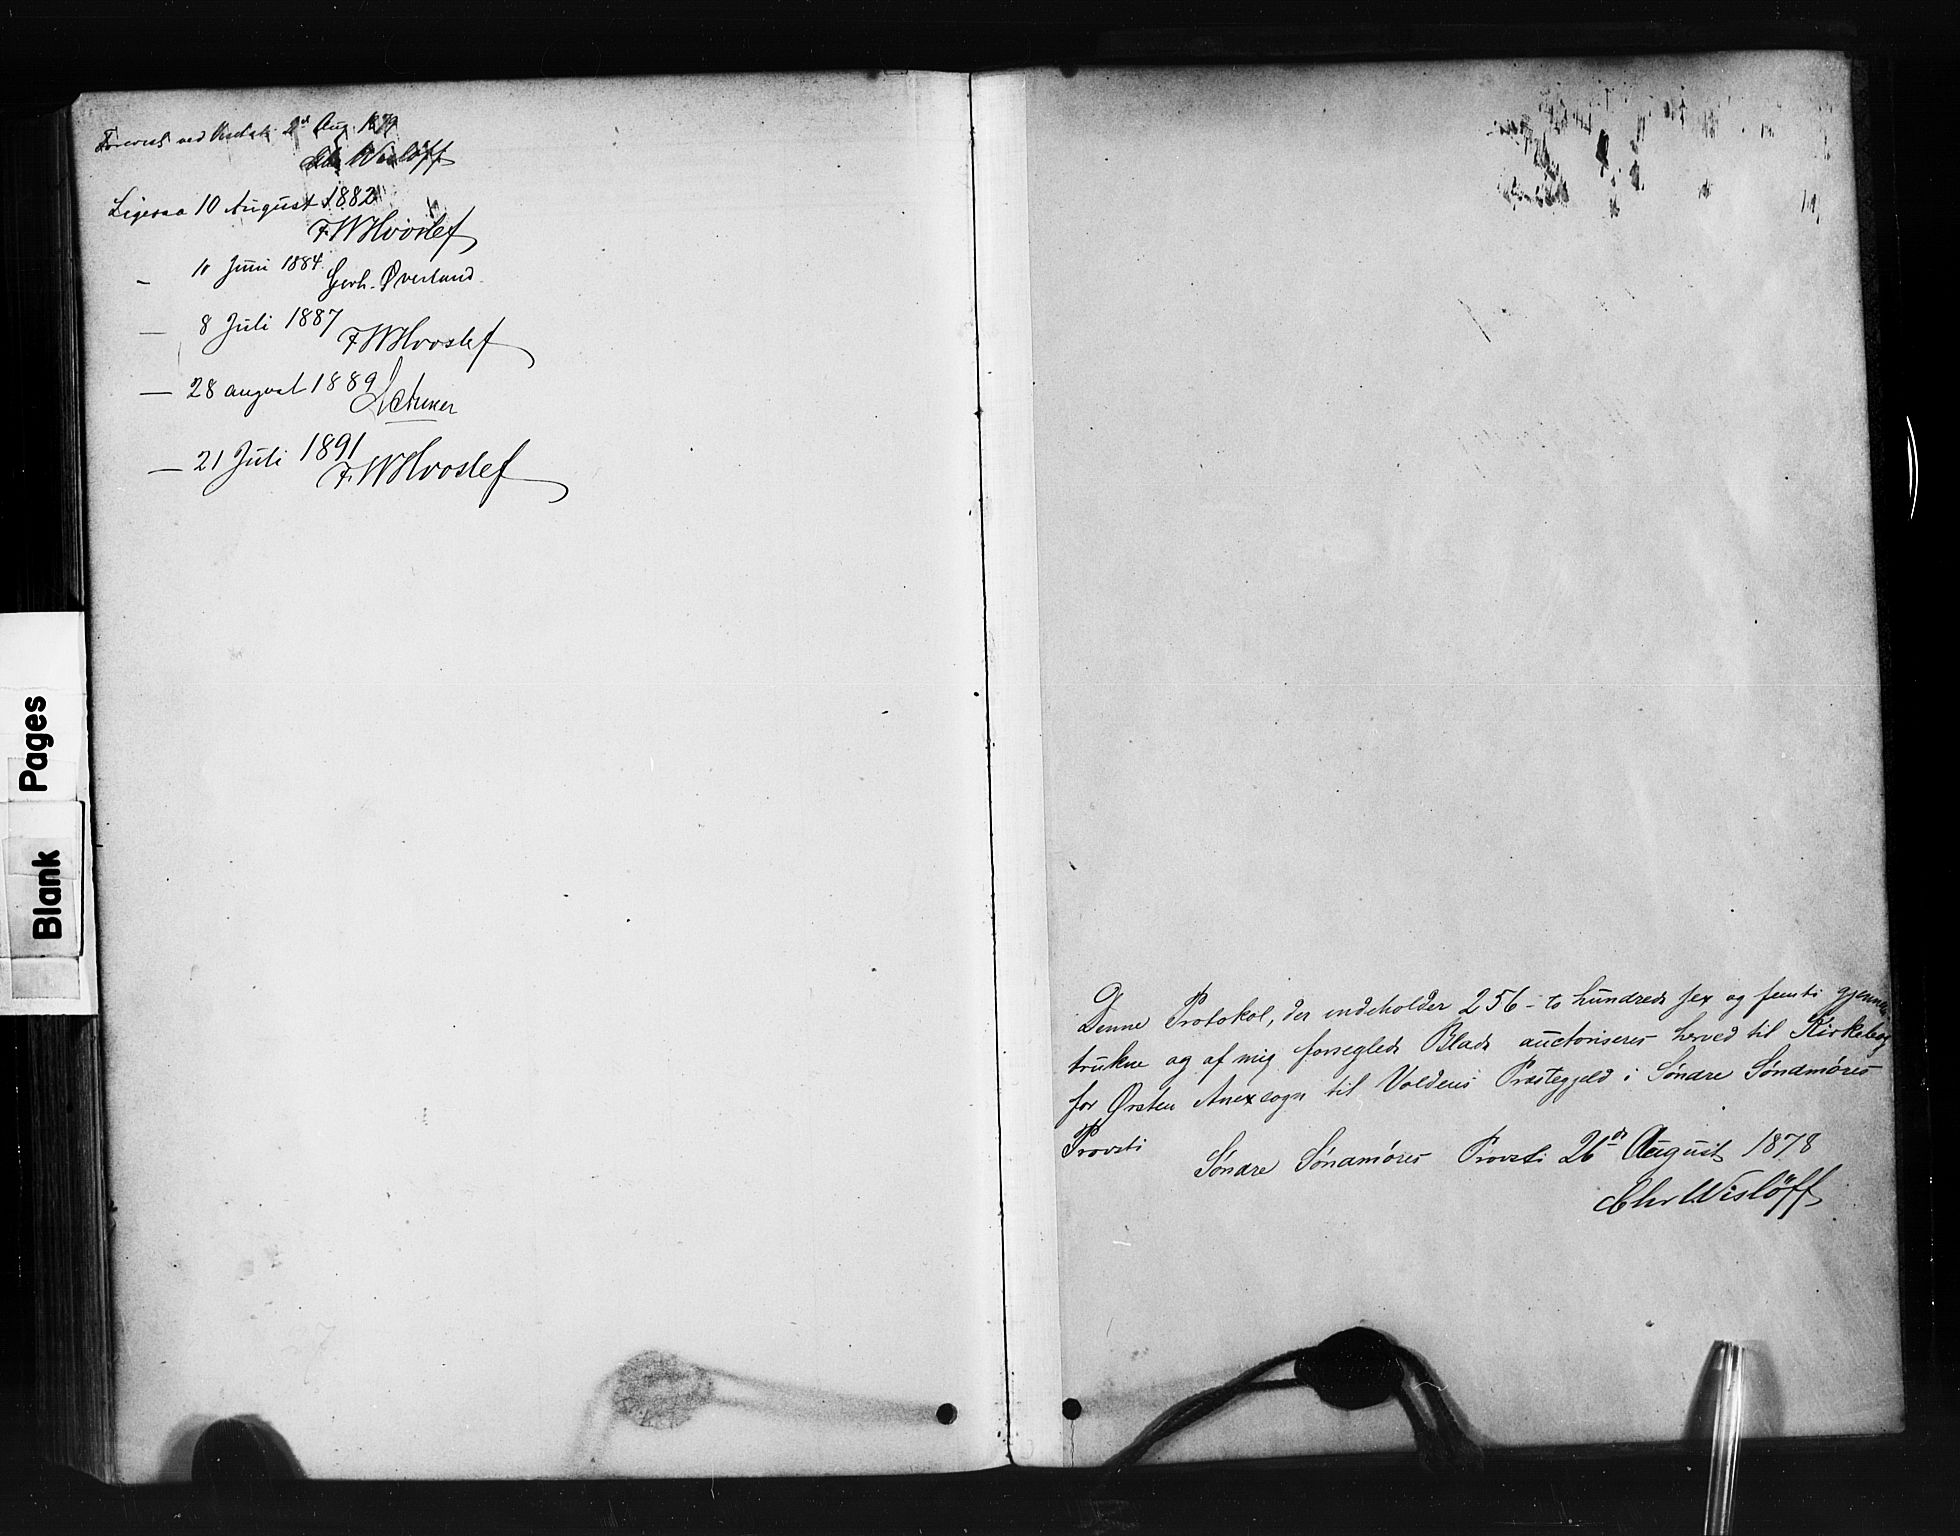 Forevist ved Visitats 2d Aug. 1879
Chr Wislöff
Ligesaa 10 August 1882
F. W Hvoslef
— 11 Juni 1884. Gerh. Øverland.
— 8 Juli 1887
F W Hvoslef
— 28 august 1889
— 21 Juli 1891
F. W Hvoslef
Blank Pages
Denne Protokol, der indeholder 256 - to hundrede sex og femti gjennem
trukne og af mig forseglede Blade auctoriseres herved til Kirkebog
for Ørsten Anexsogn til Voldens Præstegjeld i Søndre Søndmøres
Provsti
Søndre Søndmøres Provsti 26de August 1878
Chr Wislöff